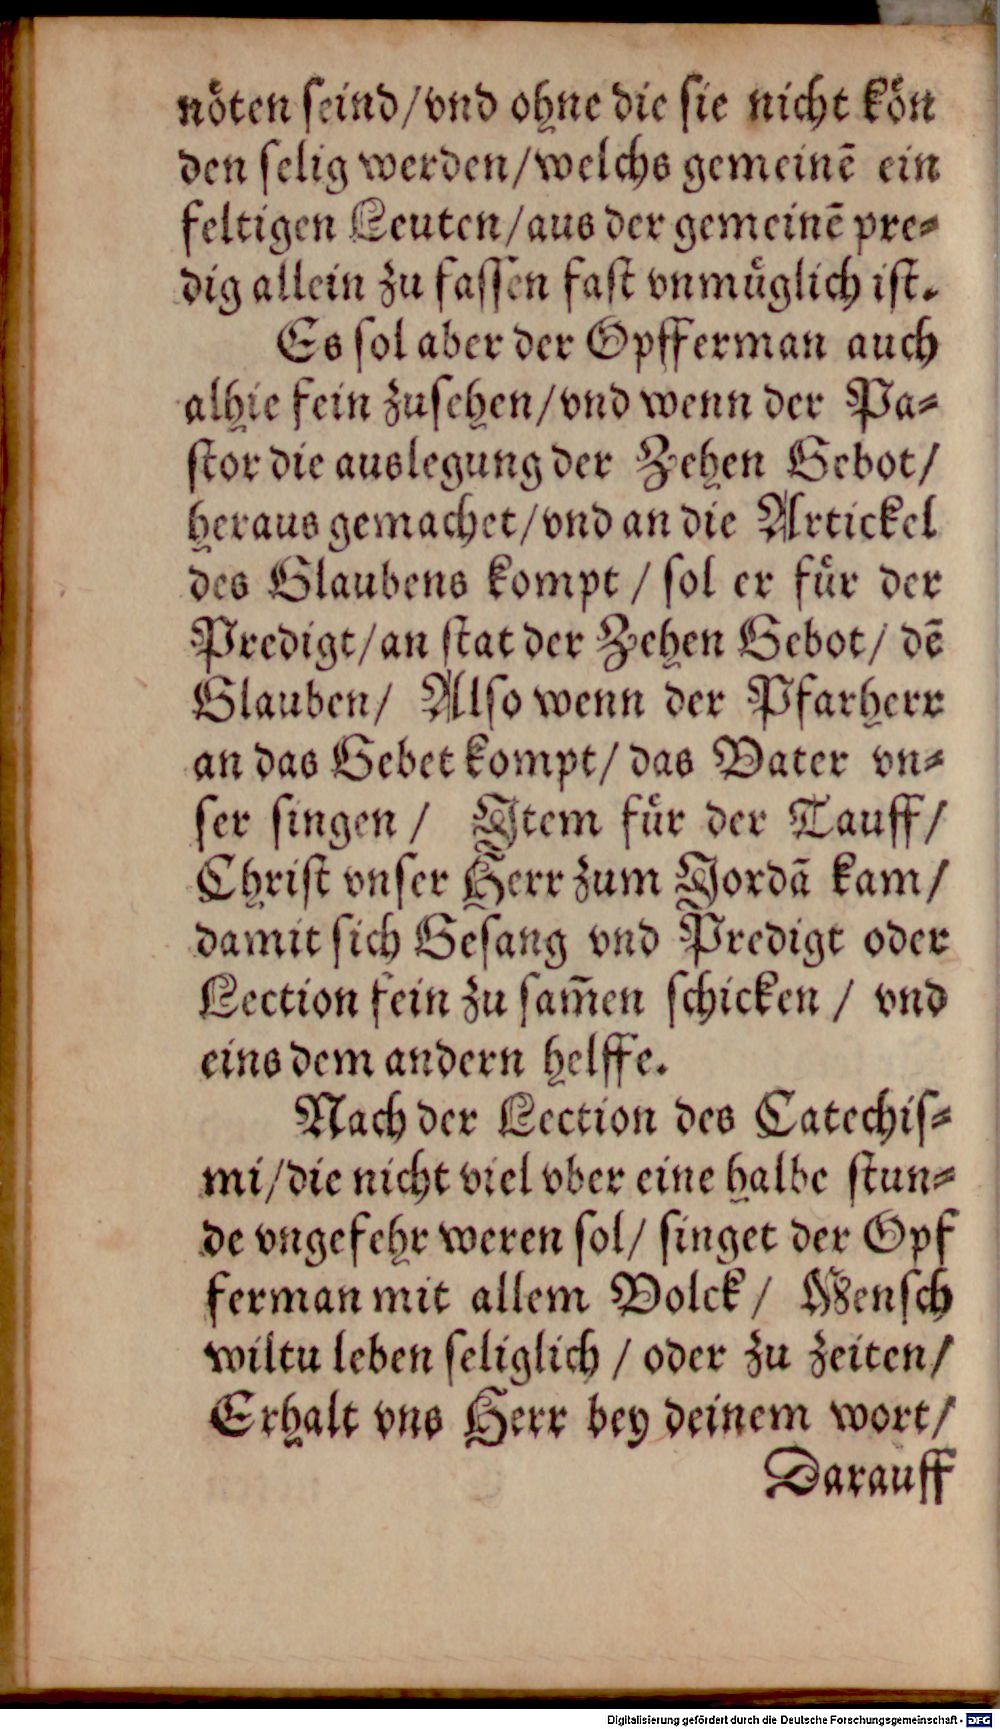 nöten seind/vnd ohne die sie nicht kön
den selig werden/welchs gemeinē ein
feltigen Leuten/aus der gemeinē pre-
dig allein zu fassen fast vnmüglich ist.
Es sol aber der Opfferman auch
alhie fein zusehen/vnd wenn der Pa-
stor die auslegung der Zehen Gebot/
heraus gemachet/vnd an die Artickel
des Glaubens kompt / sol er für der
Predigt/an stat der Zehen Gebot/ dē
Glauben/ Also wenn der Pfarherr
an das Gebet kompt/ das Vater vn-
ser singen / Item für der Tauff/
Christ vnser Herr zum Jordā kam/
damit sich Gesang vnd Predigt oder
Lection fein zu sam̄en schicken / vnd
eins dem andern helffe.
Nach der Lection des Catechis-
mi/die nicht viel vber eine halbe stun-
de vngefehr weren sol/ singet der Opf
ferman mit allem Volck / Mensch
wiltu leben seliglich / oder zu zeiten/
Erhalt vns Herr bey deinem wort/
Darauff
Digitalisierung gefördert durch die Deutsche Forschungsgemeinschaft - DFG